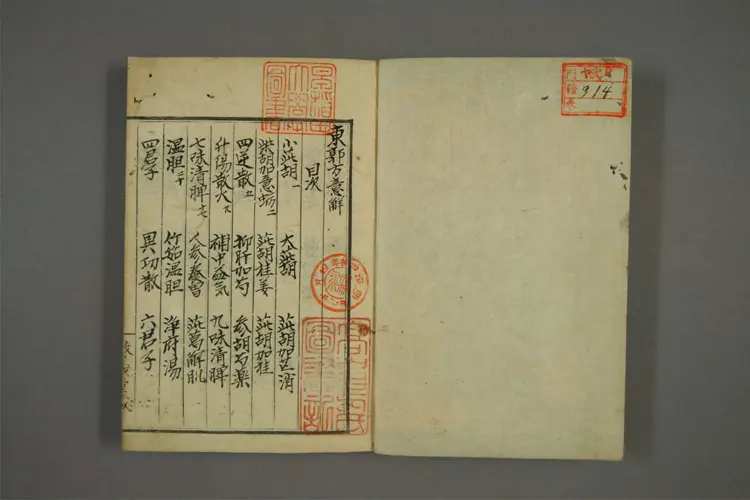 914
東郭方意解
目次
小茈胡一 大茈胡 茈胡加芒消
柴胡加竜蛎二 茈胡桂姜 茈胡加桂
四逆散五 抑肝加芍 参胡芍薬
升陽散火九 補中益気 九味清脾
七味清脾十七 人参養胃 茈葛解肌
温胆二十 竹茹温胆 浄府湯
四君子 異功散 六君子